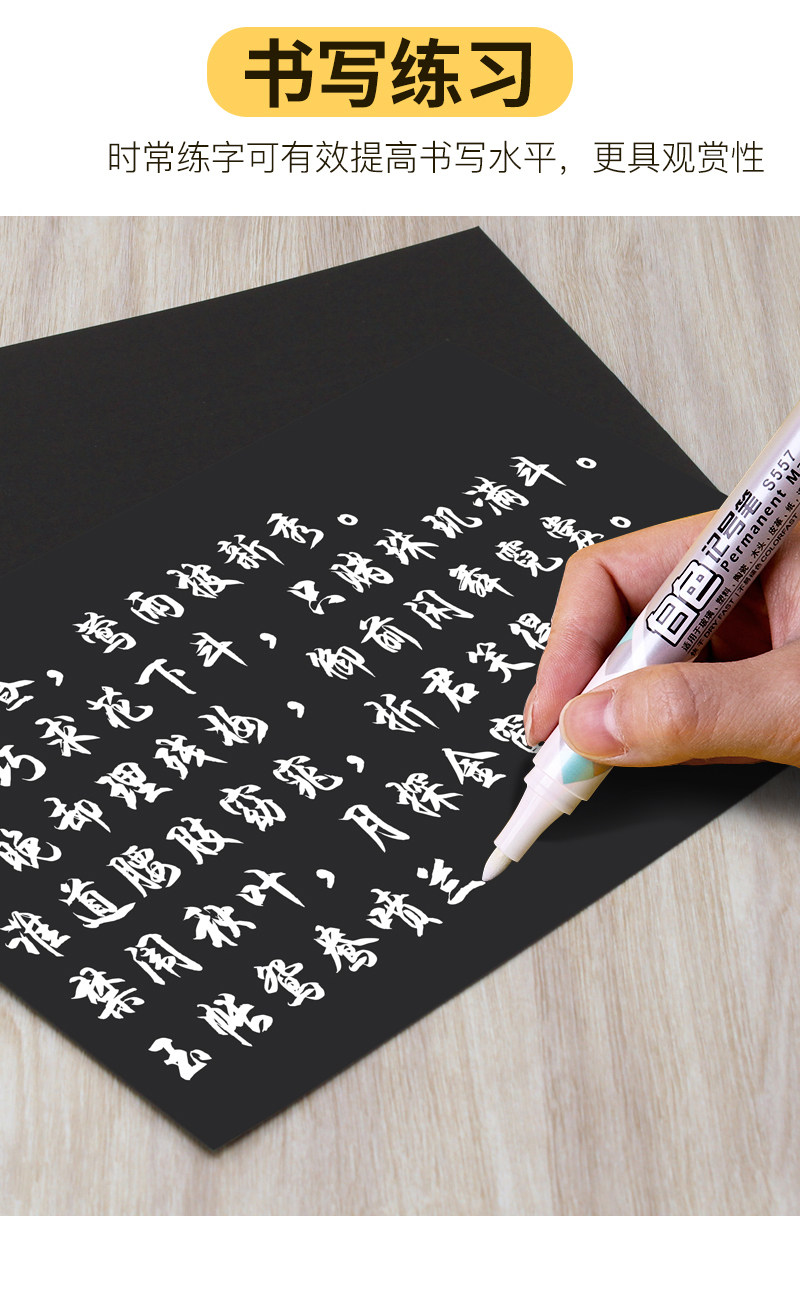 书写练习
时常练字可有效提高书写水平，更具观赏性
莺雨披新秀。
巧求花下斗，只赌珠玑满斗。
晚却理残妆，御前闲舞霓裳。
谁道腰肢窈窕，折君笑得
禁闺秋叶，月探金窗
玉帐鸳鸯喷兰
白色记号笔 S557
Permanent